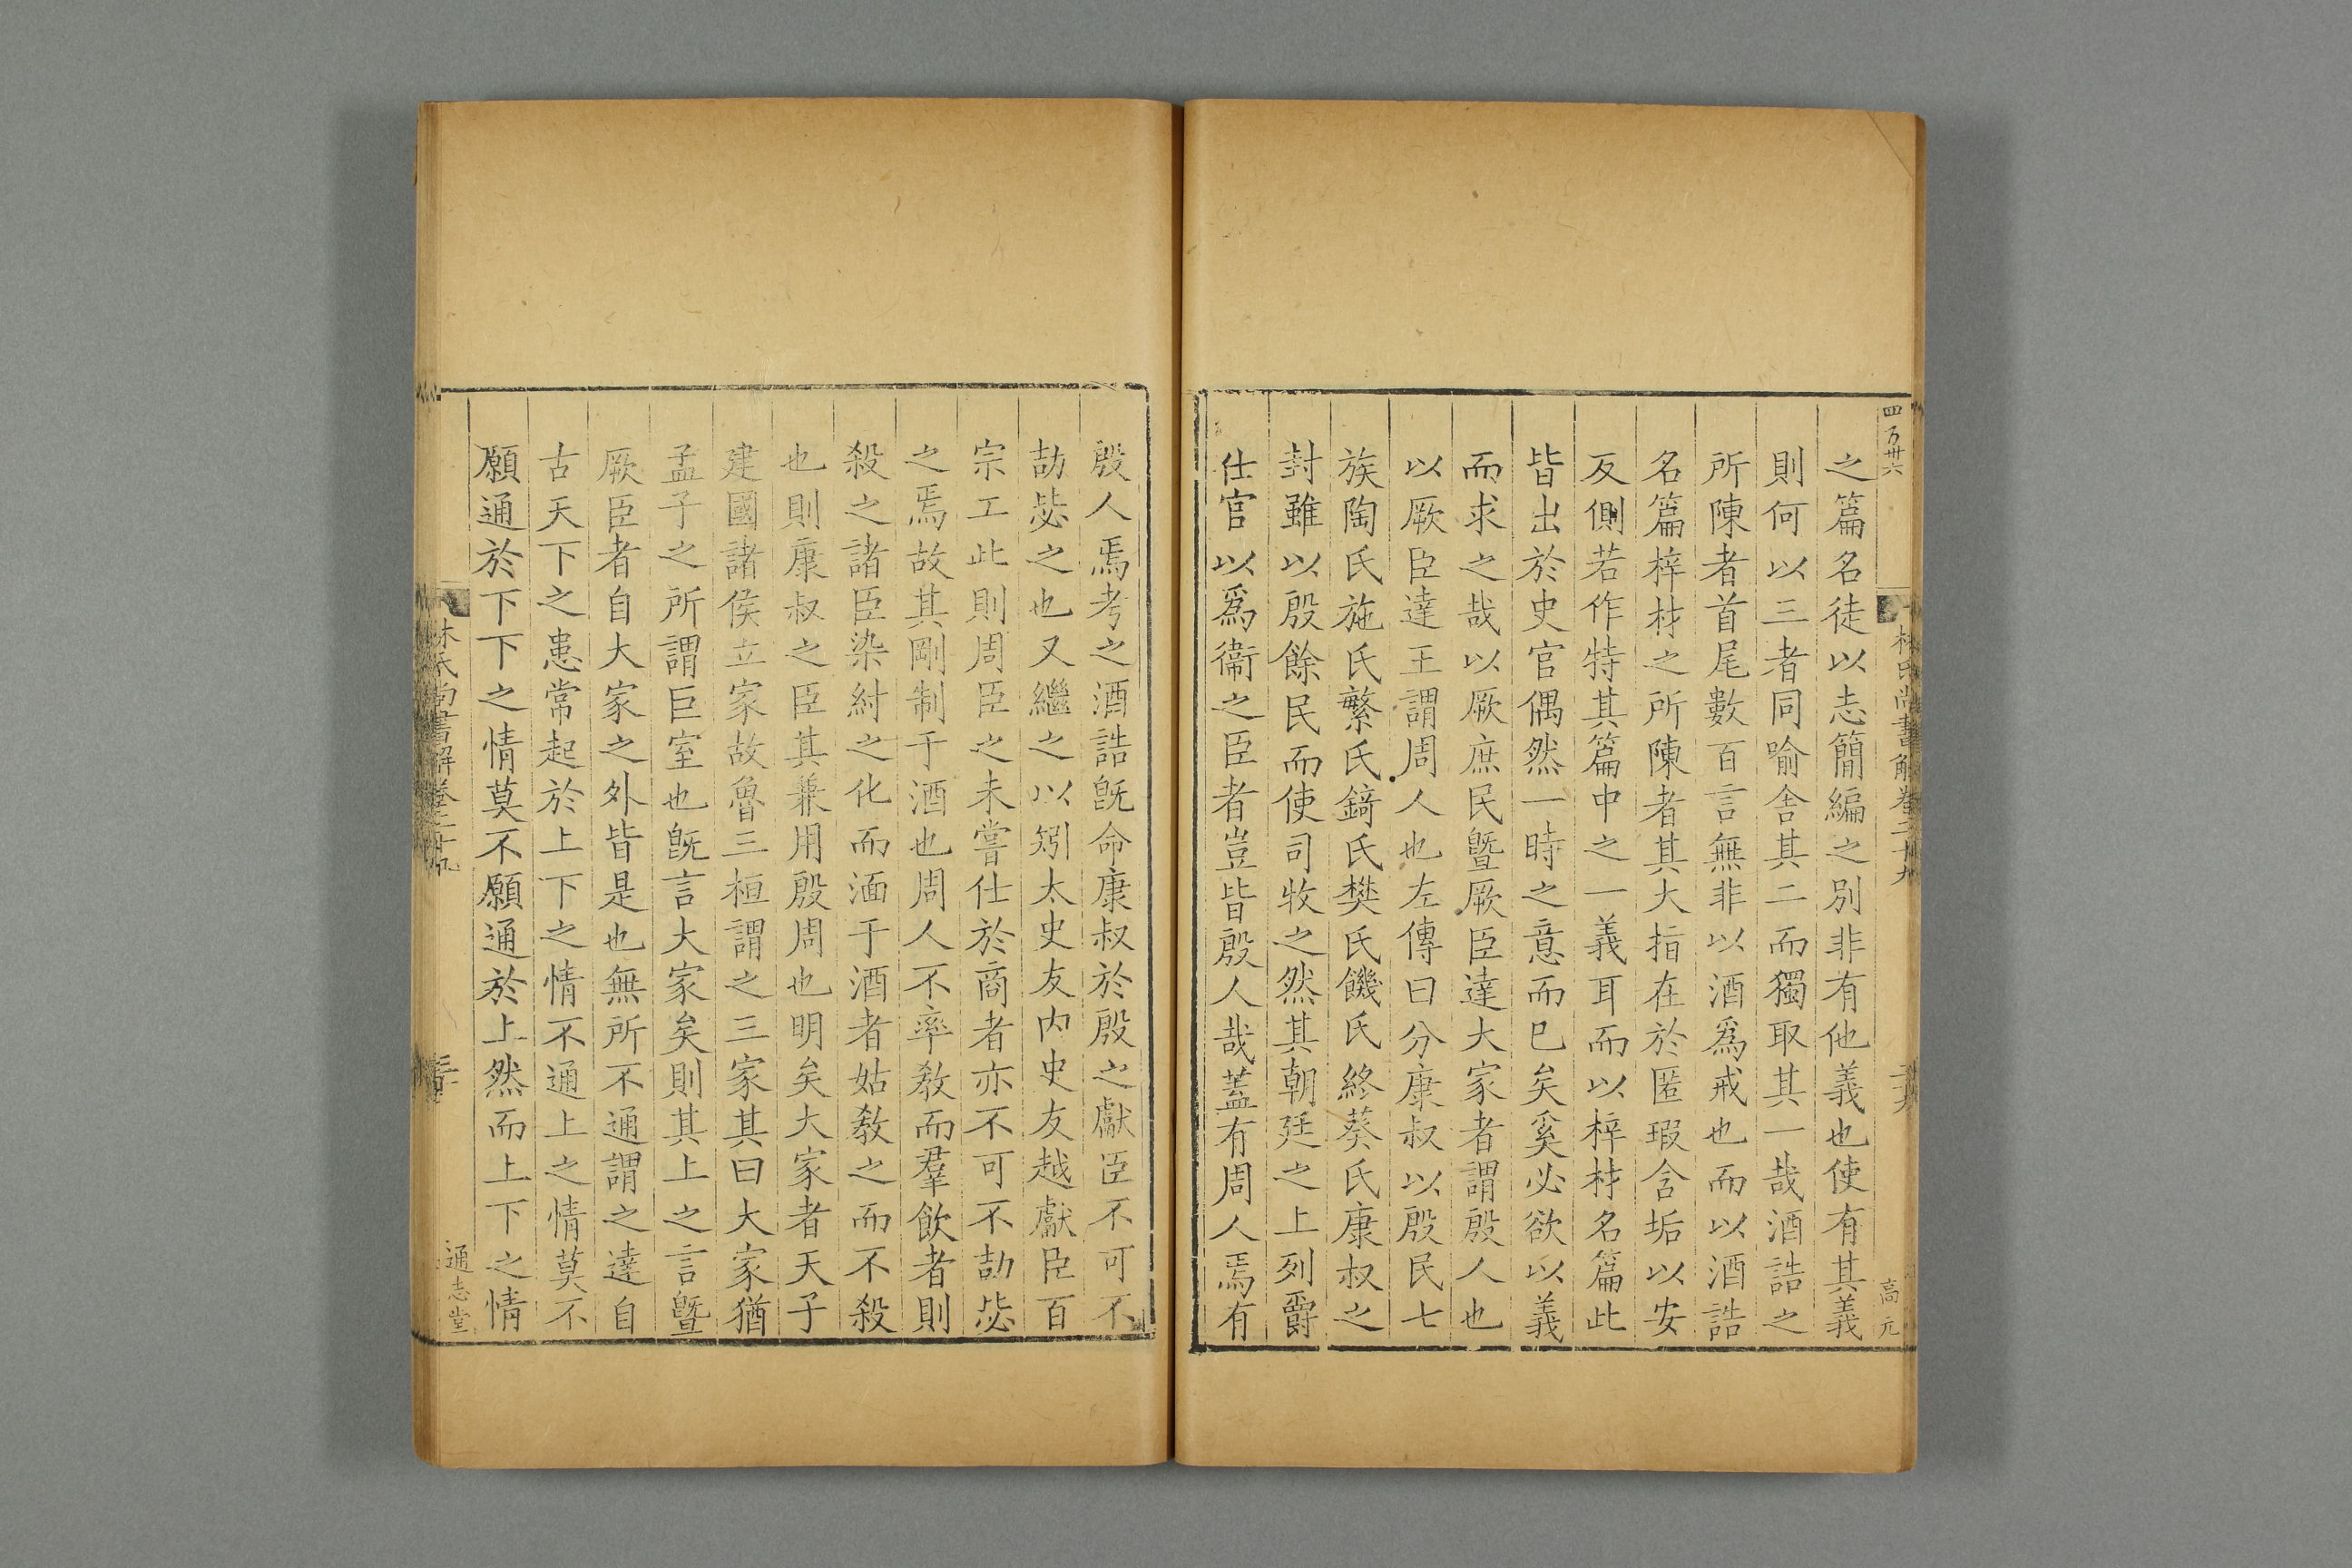 四百卅六
林氏尚書解卷二十九
高元
之篇名徒以志簡編之別非有他義也使有其義
則何以三者同喻舎其二而獨取其一哉酒誥之
所陳者首尾數百言無非以酒爲戒也而以酒誥
名篇梓材之所陳者其大指在於匿瑕含垢以安
反側若作特其篇中之一義耳而以梓材名篇此
皆出於史官偶然一時之意而巳矣奚必欲以義
而求之哉以厥庶民曁厥臣達大家者謂殷人也
以厥臣達王謂周人也左傳曰分康叔以殷民七
族陶氏施氏繁氏錡氏樊氏饑氏終葵氏康叔之
封雖以殷餘民而使司牧之然其朝廷之上列爵
仕官以爲衞之臣者豈皆殷人哉蓋有周人焉有
殷人焉考之酒誥旣命康叔於殷之獻臣不可不
劼毖之也又繼之以矧太史友内史友越獻臣百
宗工此則周臣之未嘗仕於商者亦不可不劼毖
之焉故其剛制于酒也周人不率敎而羣飲者則
殺之諸臣染紂之化而湎于酒者姑敎之而不殺
也則康叔之臣其兼用殷周也明矣大家者天子
建國諸侯立家故魯三桓謂之三家其曰大家猶
孟子之所謂巨室也旣言大家矣則其上之言曁
厥臣者自大家之外皆是也無所不通謂之達自
古天下之患常起於上下之情不通上之情莫不
願通於下下之情莫不願通於上然而上下之情
林氏尚書解卷二十九
通志堂